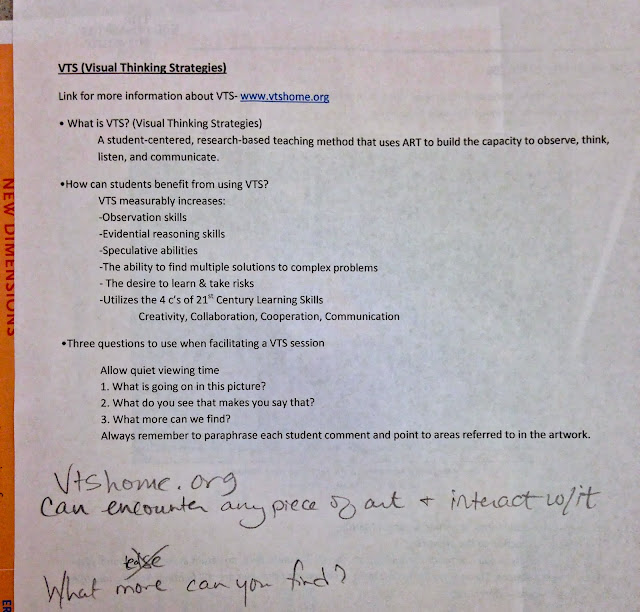 VTS (Visual Thinking Strategies)
Link for more information about VTS- www.vtshome.org
• What is VTS? (Visual Thinking Strategies)
A student-centered, research-based teaching method that uses ART to build the capacity to observe, think,
listen, and communicate.
•How can students benefit from using VTS?
VTS measurably increases:
-Observation skills
-Evidential reasoning skills
-Speculative abilities
-The ability to find multiple solutions to complex problems
- The desire to learn & take risks
-Utilizes the 4 c's of 21st Century Learning Skills
Creativity, Collaboration, Cooperation, Communication
•Three questions to use when facilitating a VTS session
Allow quiet viewing time
1. What is going on in this picture?
2. What do you see that makes you say that?
3. What more can we find?
Always remember to paraphrase each student comment and point to areas referred to in the artwork.
Vtshome.org
Can encounter any piece of art + interact w/it
What more can you find?
NEW DIMENSIONS
ER